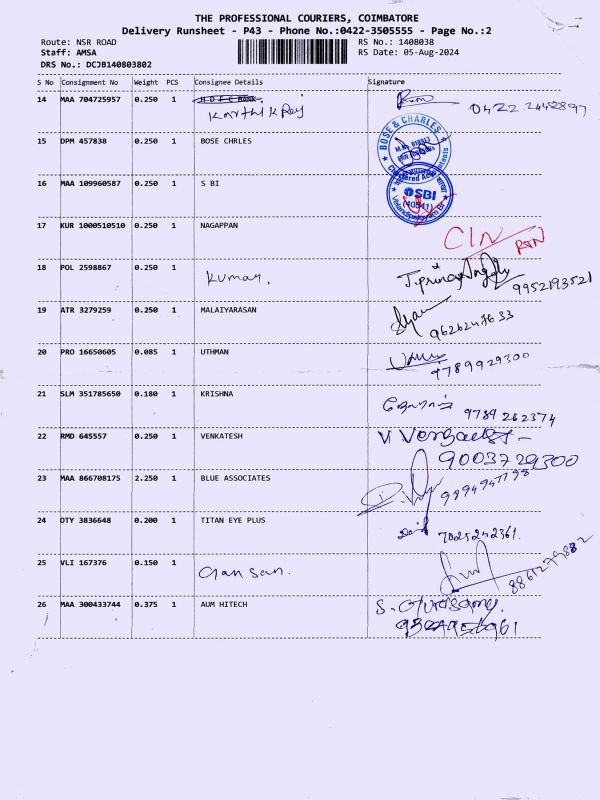 THE PROFESSIONAL COURIERS, COIMBATORE
Delivery Runsheet - P43 - Phone No.:0422-3505555 - Page No.:2
Route: NSR ROAD RS No.: 1408038
Staff: AMSA RS Date: 05-Aug-2024
DRS No.: DCJB140803802
S No Consignment No Weight PCS Consignee Details Signature
14 MAA 704725957 0.250 1 H D F C BANK.
Karthik Raj
15 DPM 457838 0.250 1 BOSE CHRLES BOSE & CHARLES
16 MAA 109960587 0.250 1 S BI SBI
(40541)
17 KUR 1000510510 0.250 1 NAGAPPAN
18 POL 2598867 0.250 1
Kumar. 9952193521
19 ATR 3279259 0.250 1 MALAIYARASAN
20 PRO 16650605 0.085 1 UTHMAN
9789929300
21 SLM 351785650 0.180 1 KRISHNA
9789262374
22 RMD 645557 0.250 1 VENKATESH
9003729300
23 MAA 866708175 2.250 1 BLUE ASSOCIATES
24 OTY 3836648 0.200 1 TITAN EYE PLUS
25 VLI 167376 0.150 1
Gansan.
26 MAA 300433744 0.375 1 AUM HITECH